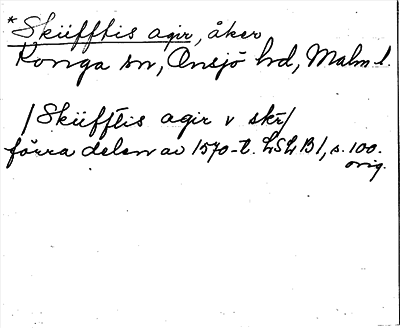 *Skiifftis agir, åker
Konga sn, Onsjö hd, Malm. l.
/Skiifftis agir v skr/
förra delen av 1570-t. LSLB1, s. 100.
orig.